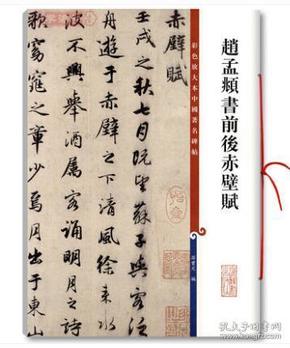 趙孟頫書前後赤壁賦
彩色放大本中國著名碑帖
孫寶文 編
赤壁賦
壬戌之秋七月既望蘇子與客泛
舟遊于赤壁之下清風徐來水
波不興舉酒屬客誦明月之詩
歌窈窕之章少焉月出于東山